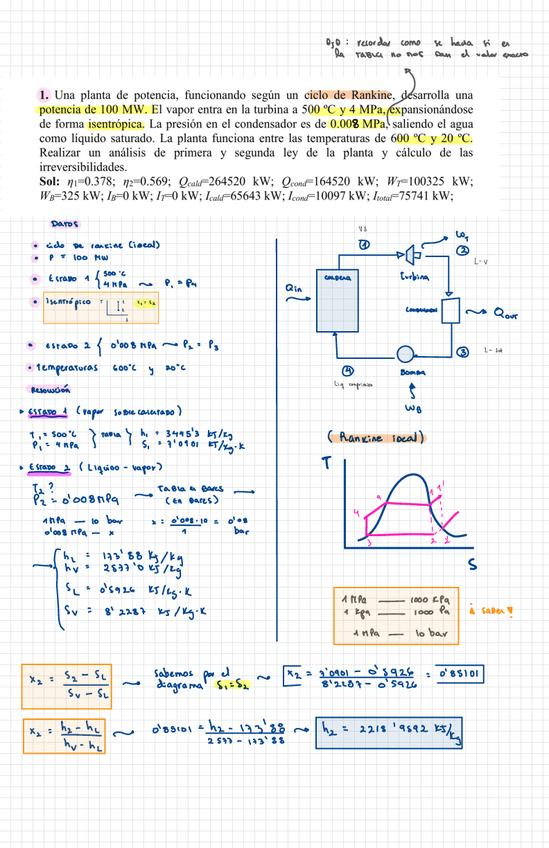 OJO : recordar como se hacía si en
la TABLA no nos dan el valor exacto
1. Una planta de potencia, funcionando según un ciclo de Rankine, desarrolla una
potencia de 100 MW. El vapor entra en la turbina a 500 ºC y 4 MPa, expansionándose
de forma isentrópica. La presión en el condensador es de 0.008 MPa, saliendo el agua
como líquido saturado. La planta funciona entre las temperaturas de 600 ºC y 20 ºC.
Realizar un análisis de primera y segunda ley de la planta y cálculo de las
irreversibilidades.
Sol: η1=0.378; η2=0.569; Qcald=264520 kW; Qcond=164520 kW; WT=100325 kW;
WB=325 kW; IB=0 kW; IT=0 kW; Icald=65643 kW; Icond=10097 kW; Itotal=75741 kW;
Datos
• Ciclo de Rankine (ideal)
• P = 100 MW
• Estado 1 { 500 ºC
4 MPa ⇝ P1 = P4
• Isentrópico T S S1 = S2
• estado 2 { 0'008 MPa ⇝ P2 = P3
• Temperaturas 600ºC y 20ºC
Resolución
▸ Estado 1 (vapor sobrecalentado)
T1 = 500ºC } TABLA } h1 = 3445'3 KJ/Kg
P1 = 4 MPa S1 = 7'0901 KJ/Kg·K
▸ Estado 2 (Líquido - vapor)
T2 ?
P2 = 0'008 MPa → TABLA B BARES →
(EN BARES)
1 MPa — 10 bar x = 0'008·10 / 1 = 0'08 bar
0'008 MPa — x
hL = 173'88 KJ/Kg
hV = 2577'0 KJ/Kg
SL = 0'5926 KJ/Kg·K
SV = 8'2287 KJ/Kg·K
VS
1
WT
2
CALDERA
turbina
L-V
Qin
CONDENSADOR
Qout
4
3
L-sat
Bomba
WB
(Rankine ideal)
T
1'
1
4
3
2
2'
S
1 MPa — 1000 KPa
1 Kpa — 1000 Pa
1 MPa — 10 bar
¡ SABER !
x2 = S2 - SL / SV - SL
Sabemos por el
diagrama S1 = S2
x2 = 7'0901 - 0'5926 / 8'2287 - 0'5926 = 0'85101
x2 = h2 - hL / hV - hL
0'85101 = h2 - 173'88 / 2577 - 173'88
h2 = 2218'9592 KJ/Kg